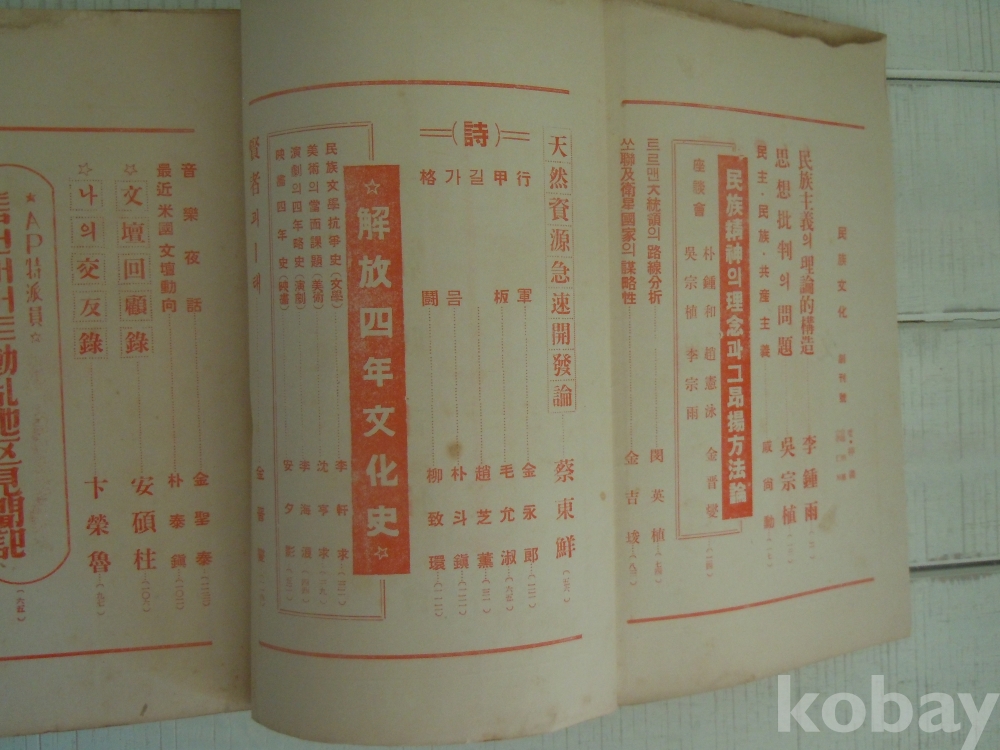 民族文化 創刊號
民族主義의 理論的 構造 李鍾雨
思想批判의 問題 吳宗植
民主·民族·共産主義
民族精神의 理念과 그 昻揚方法論
座談會
朴鍾和 趙憲泳 金晋燮
吳宗植 李宗雨
트르맨大統領의 路線分析 閔英植
쏘聯及衛星國家의 謀略性 金吉埈
天然資源急速開發論 蔡東鮮
(詩)
行軍 金永郎
甲板 毛允淑
길 趙芝薰
가믐 朴斗鎭
格鬪 柳致環
☆解放四年文化史☆
民族文學抗爭史(文學) 李軒求
美術의 當面課題(美術) 沈亨求
演劇의 四年略史(演劇) 李海浪
映畵四年史(映畵) 安夕影
音樂夜話 金聖泰
最近米國文壇動向 朴泰鎭
☆文壇回顧錄 安碩柱
☆나의 交友錄 卞榮魯
★AP特派員☆
動乱地区見聞記
kobay